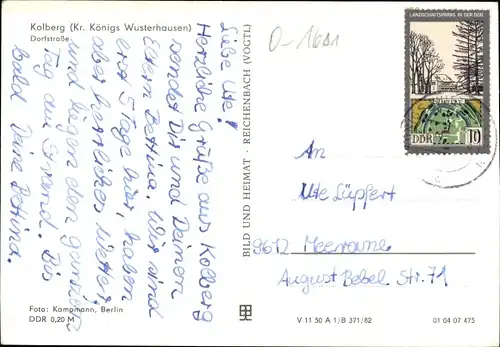 Kolberg (Kr. Königs Wusterhausen)
Dorfstraße
Liebe Ute!
Herzliche Grüße aus Kolberg
sendet Dir und Deinen
Eltern Bettina. Wir sind
erst 5 Tage hier, haben
aber herrliches Wetter
und liegen den ganzen
Tag am Strand. Bis
bald Deine Bettina.
Foto: Kampmann, Berlin
DDR 0,20 M
BILD UND HEIMAT · REICHENBACH (VOGTL)
V 11 50 A 1/B 371/82
01 04 07 475
O-1681
LANDSCHAFTSPARKS IN DER DDR
DDR 10
An
Ute Lüpfert
9612 Meerane
August Bebel Str. 71